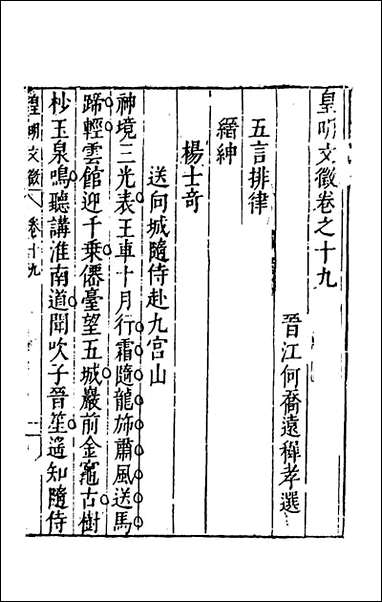 皇明文徵卷之十九
晉江何喬遠穉孝選
五言排律
縉紳
楊士奇
送向城隨侍赴九宮山
神境三光表王車十月行霜隨龍旆肅風送馬
蹄輕雲館迎千乘僊臺望五城巖前金竈古樹
杪玉泉鳴聽講淮南道聞吹子晉笙遙知隨侍
皇明文徵 卷十九 一